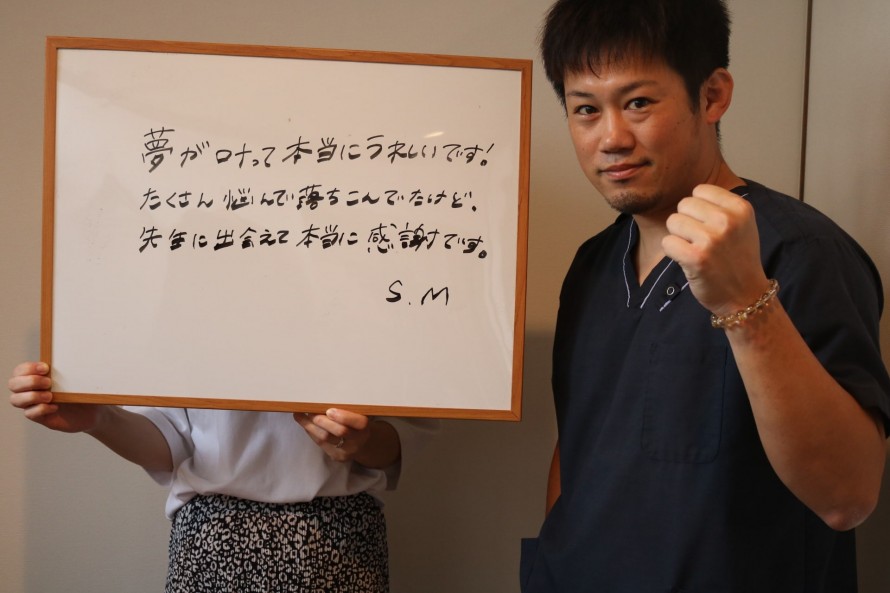 夢が叶って本当にうれしいです!
たくさん悩んで落ちこんでいたけど、
先生に出会えて本当に感謝です。
S.M